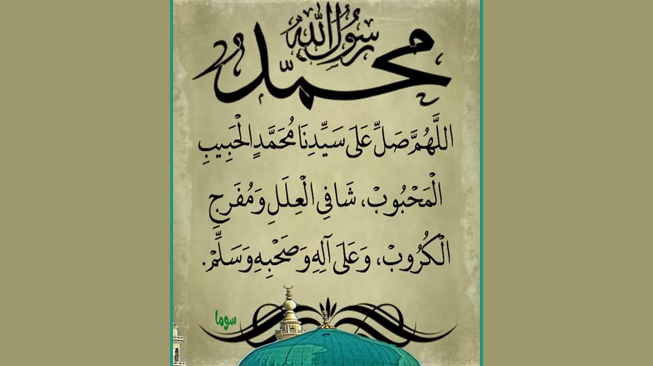 محمد رسول الله
اللَّهُمَّ صَلِّ عَلَى سَيِّدِنَا مُحَمَّدٍ الْحَبِيبِ
الْمَحْبُوبْ، شَافِي الْعِلَلِ وَمُفَرِجِ
الْكُرُوبْ، وَعَلَى آلِهِ وَصَحْبِهِ وَسَلِّمْ.
سوما